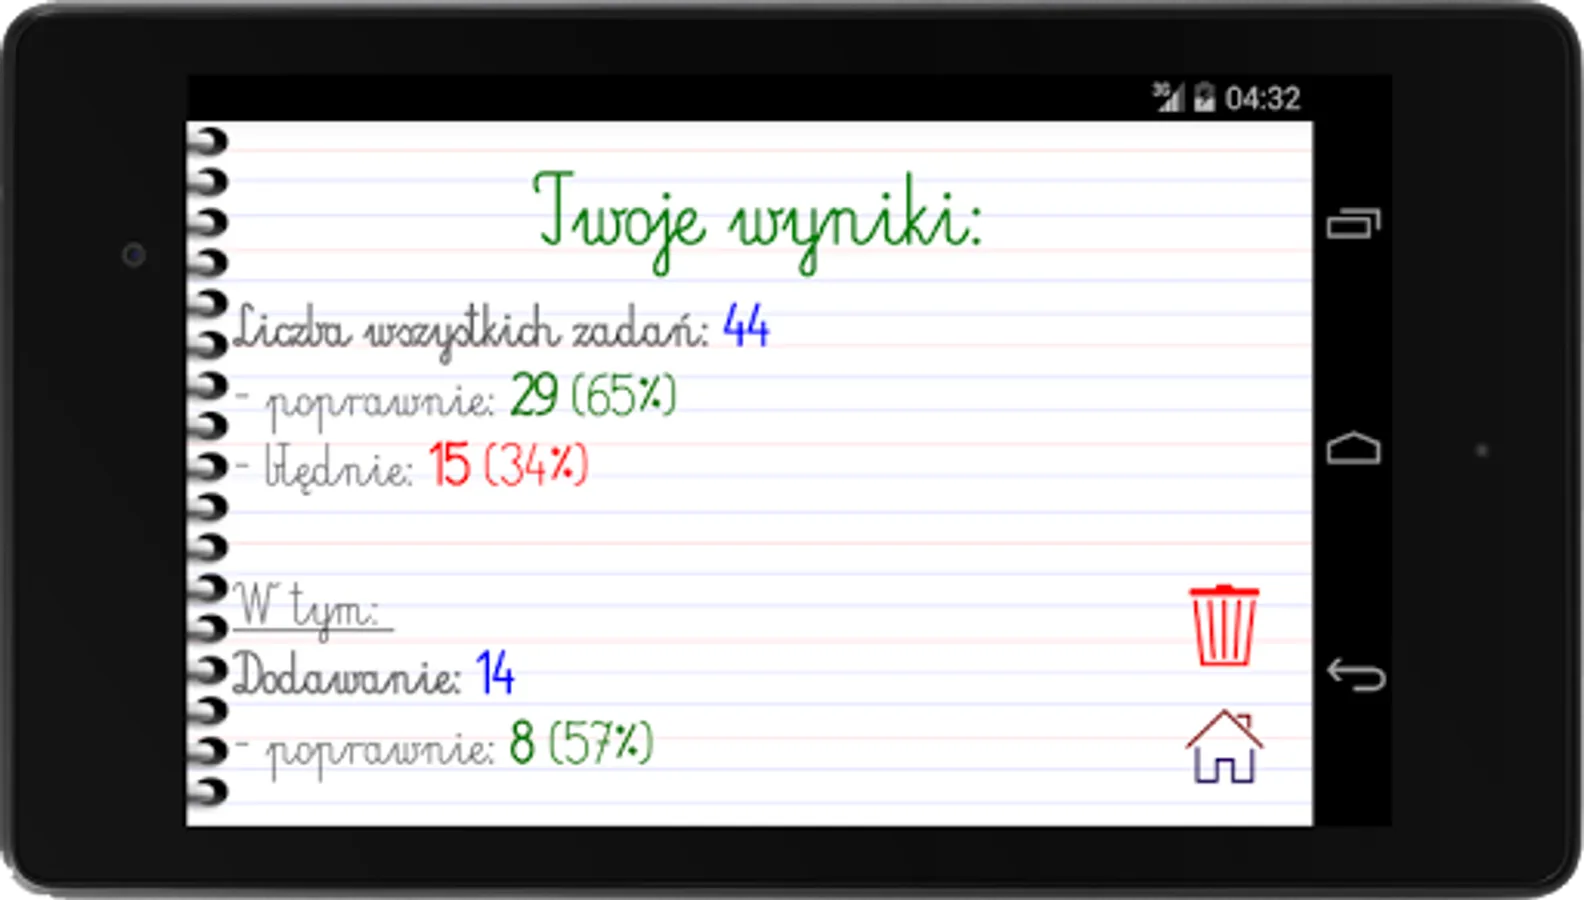 3G 04:32
Twoje wyniki:
Liczba wszystkich zadań: 44
- poprawnie: 29 (65%)
- błędnie: 15 (34%)
W tym:
Dodawanie: 14
- poprawnie: 8 (57%)